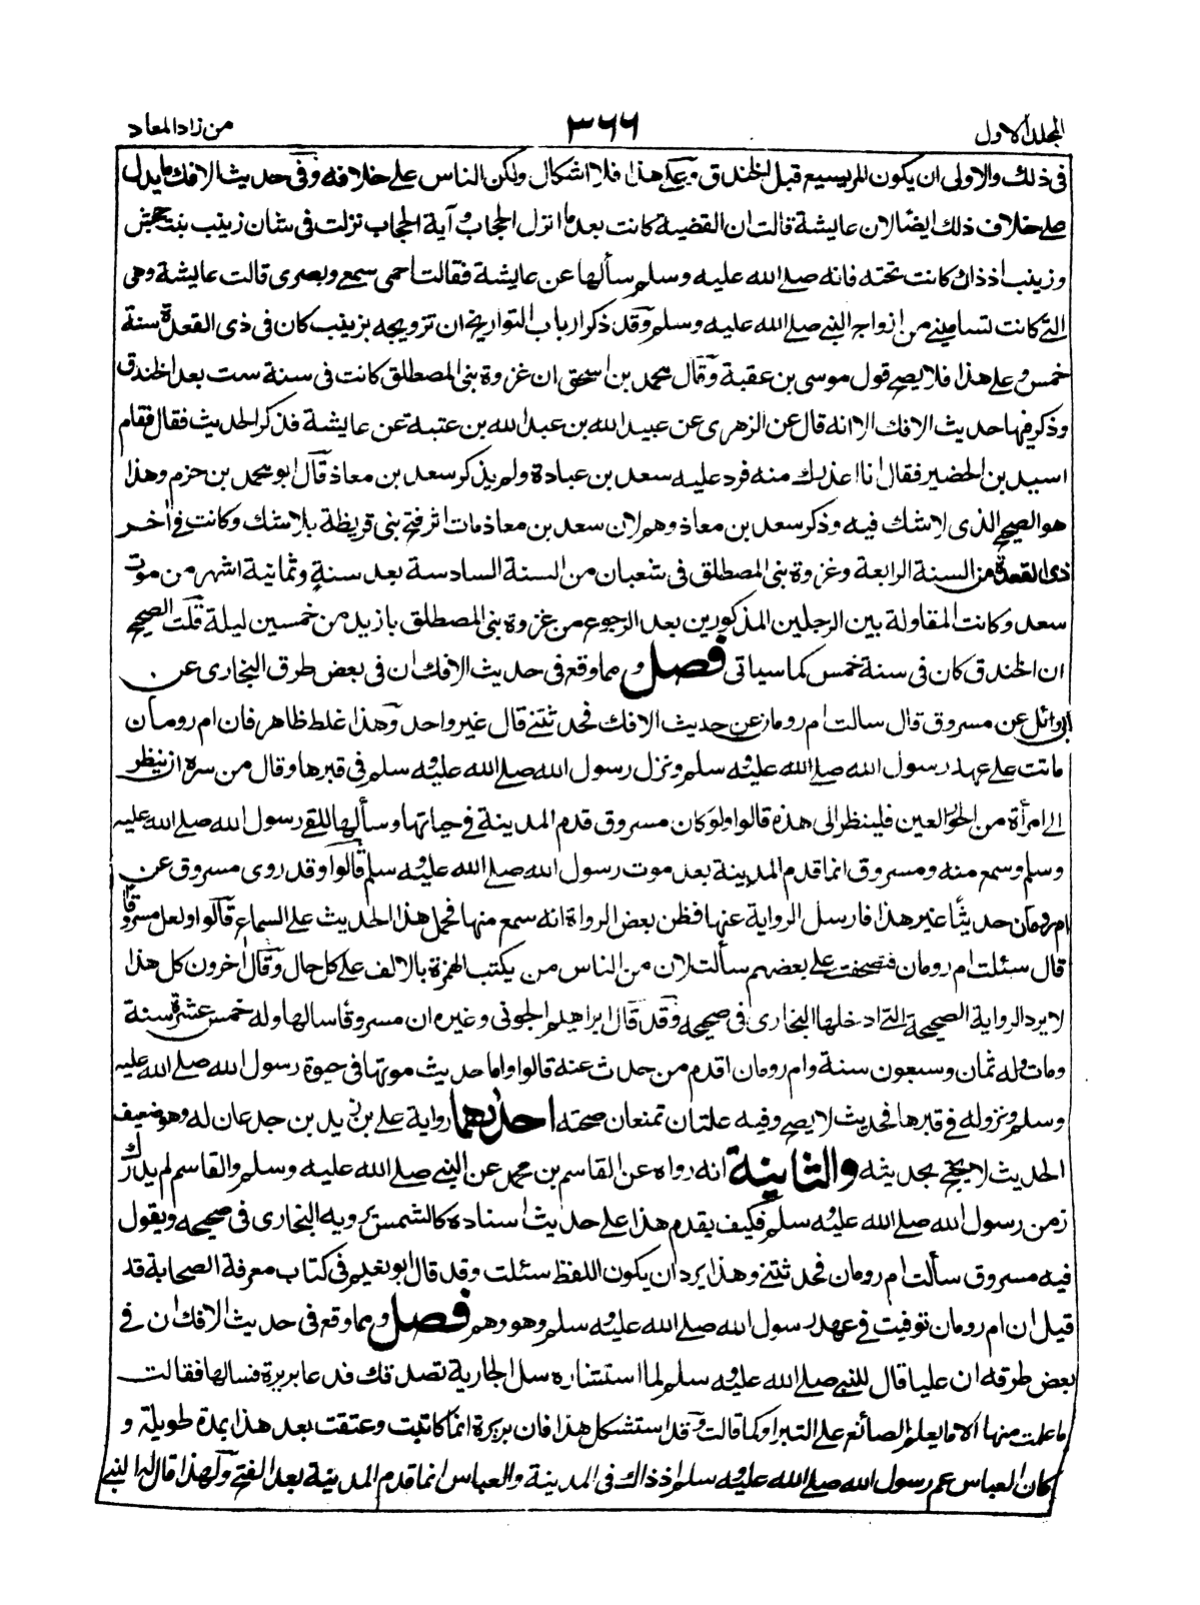 المجلد الاول
٣٦٦
من زاد المعاد
فى ذلك والاولى ان يكون المريسيع قبل الخندق وعلى هذا فلا اشكال ولكن الناس على خلافه وفى حديث الافك ما يدل
على خلاف ذلك ايضا لان عايشة قالت ان القضية كانت بعد ما انزل الحجاب وآية الحجاب نزلت فى شان زينب بنت جحش
وزينب اذ ذاك كانت تحته فانه صلے الله عليه وسلم سألها عن عايشة فقالت احمى سمعى وبصرى قالت عايشة وهى
التے كانت تسامينے من ازواج النبے صلے الله عليه وسلم وقد ذكر ارباب التواريخ ان تزويجه بزينب كان فى ذى القعدة سنة
خمس وعلى هذا فلا يصح قول موسى بن عقبة وقال محمد بن اسحق ان غزوة بنى المصطلق كانت فى سنة ست بعد الخندق
وذكر فيها حديث الافك الا انه قال عن الزهرى عن عبيد الله بن عبد الله بن عتبة عن عايشة فذكر الحديث فقال فقام
اسيد بن الحضير فقال انا اعذرك منه فرد عليه سعد بن عبادة ولم يذكر سعد بن معاذ قال ابو محمد بن حزم وهذا
هو الصحيح الذى لا شك فيه وذكر سعد بن معاذ وهم لان سعد بن معاذ مات اثر فتح بنى قريظة بلا شك وكانت فى أخر
ذى القعدة من السنة الرابعة وغزوة بنى المصطلق فى شعبان من السنة السادسة بعد سنةٍ وثمانية اشهر من موت
سعد وكانت المقاولة بين الرجلين المذكورين بعد الرجوع من غزوة بنى المصطلق بازيد من خمسين ليلة قلت الصحيح
ان الخندق كان فى سنة خمس كما سياتى فصل ومما وقع فى حديث الافك ان فى بعض طرق البخارى عن
ابى وائل عن مسروق قال سالت ام رومان عن حديث الافك فحدثتنے قال غير واحد وهذا غلط ظاهر فان ام رومان
ماتت على عهد رسول الله صلے الله عليه وسلم ونزل رسول الله صلے الله عليه وسلم فى قبرها وقال من سره ان ينظر
الى امرأة من الحور العين فلينظر الى هذه قالوا ولو كان مسروق قدم المدينة فى حياتها وسألها للقے رسول الله صلے الله عليه
وسلم وسمع منه ومسروق انما قدم المدينة بعد موت رسول الله صلے الله عليه وسلم قالوا وقد روى مسروق عن
ام رومان حديثًا غير هذا فارسل الرواية عنها فظن بعض الرواة انه سمع منها فحمل هذا الحديث على السماع قالوا ولعل مسروقا
قال سئلت ام رومان فتصحفت على بعضهم سألت لان من الناس من يكتب الهمزة بالالف على كل حال وقال أخرون كل هذا
لا يرد الرواية الصحيحة التے ادخلها البخارى فى صحيحه وقد قال ابراهيم الجونى وغيره ان مسروقا سالها وله خمس عشرة سنة
ومات وله ثمان وسبعون سنة وام رومان اقدم من حدث عنه قالوا واما حديث موتها فى حيوة رسول الله صلے الله عليه
وسلم ونزوله فى قبرها فحديث لا يصح وفيه علتان تمنعان صحته احدٰىهما رواية على بن زيد بن جدعان له وهو ضعيف
الحديث لا يحتج بحديثه والثانية انه رواه عن القاسم بن محمد عن النبے صلے الله عليه وسلم والقاسم لم يدرك
زمن رسول الله صلے الله عليه وسلم فكيف يقدم هذا على حديث اسناده كالشمس يرويه البخارى فى صحيحه ويقول
فيه مسروق سألت ام رومان فحدثتنے وهذا يرد ان يكون اللفظ سئلت وقد قال ابو نعيم فى كتاب معرفة الصحابة قد
قيل ان ام رومان توفيت فى عهد رسول الله صلے الله عليه وسلم وهو وهم فصل ومما وقع فى حديث الافك ان فى
بعض طرقه ان عليا قال للنبے صلے الله عليه وسلم لما استشاره سل الجارية تصدقك فدعا بريرة فسالها فقالت
ما علمت منها الا ما يعلم الصائغ على التبر او كما قالت وقد استشكل هذا فان بريرة انما كاتبت وعتقت بعد هذا بمدة طويلة و
كان العباس عم رسول الله صلے الله عليه وسلم اذ ذاك فى المدينة والعباس انما قدم المدينة بعد الفتح ولهذا قال له النبے